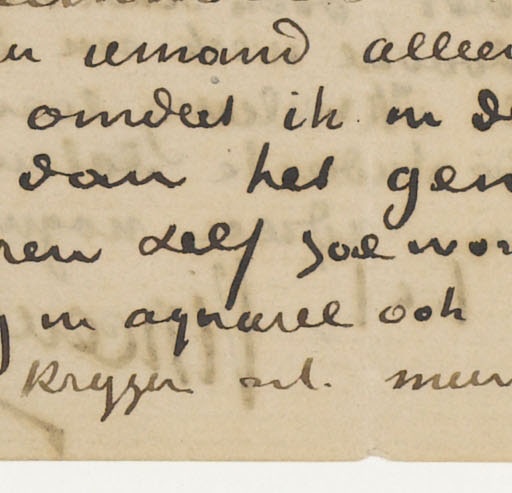 iemand alleen
omdat ik in d
dan het gen
ren zelf zoal wor
in aquarel ook
Krijgen nl. meer